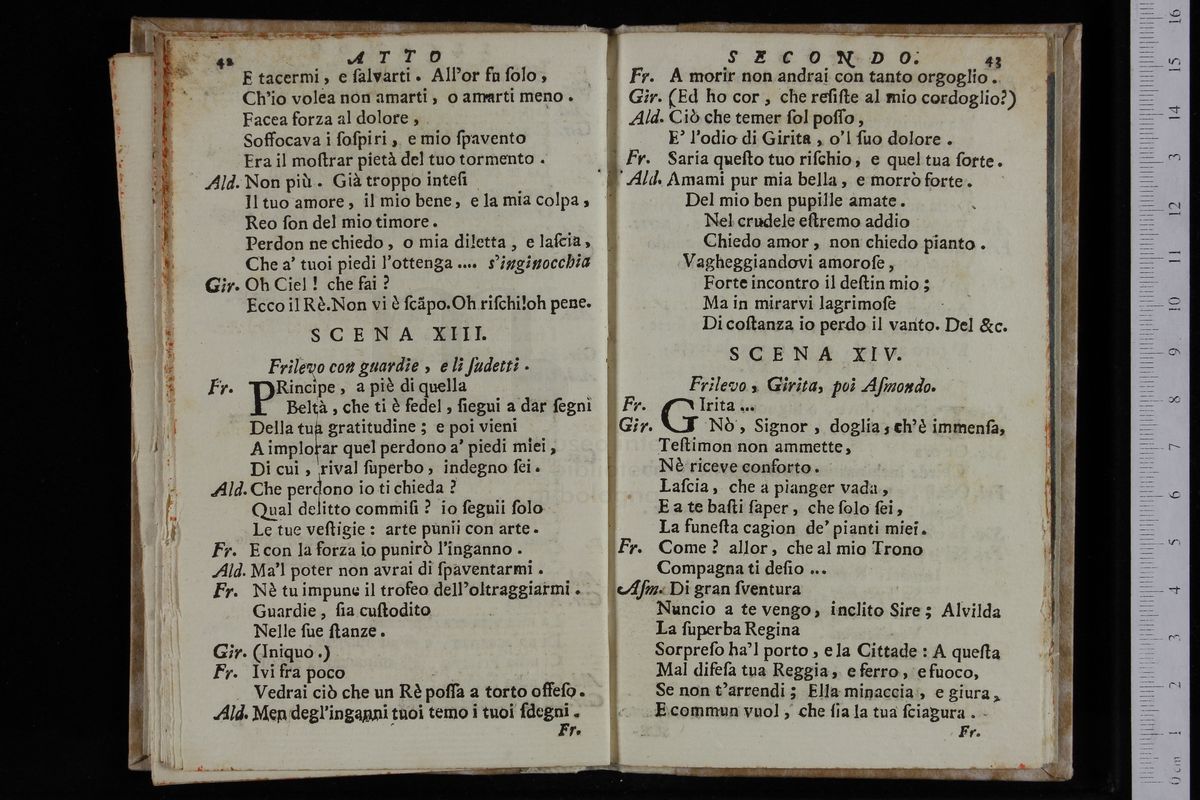 42 ATTO
E tacermi, e ſalvarti. All'or fu ſolo,
Ch'io volea non amarti, o amarti meno.
Facea forza al dolore,
Soffocava i ſoſpiri, e mio ſpavento
Era il moſtrar pietà del tuo tormento.
Ald. Non più. Già troppo inteſi
Il tuo amore, il mio bene, e la mia colpa,
Reo ſon del mio timore.
Perdon ne chiedo, o mia diletta, e laſcia,
Che a' tuoi piedi l'ottenga .... s'inginocchia
Gir. Oh Ciel! che fai?
Ecco il Rè. Non vi è ſcãpo. Oh riſchi! oh pene.
SCENA XIII.
Frilevo con guardie, e li ſudetti.
Fr. PRincipe, a piè di quella
Beltà, che ti è fedel, ſiegui a dar ſegni
Della tua gratitudine; e poi vieni
A implorar quel perdono a' piedi miei,
Di cui, rival ſuperbo, indegno ſei.
Ald. Che perdono io ti chieda?
Qual delitto commiſi? io ſeguii ſolo
Le tue veſtigie: arte punii con arte.
Fr. E con la forza io punirò l'inganno.
Ald. Ma'l poter non avrai di ſpaventarmi.
Fr. Nè tu impune il trofeo dell'oltraggiarmi.
Guardie, ſia cuſtodito
Nelle ſue ſtanze.
Gir. (Iniquo.)
Fr. Ivi fra poco
Vedrai ciò che un Rè poſſa a torto offeſo.
Ald. Men degl'inganni tuoi temo i tuoi ſdegni.
Fr.
SECONDO. 43
Fr. A morir non andrai con tanto orgoglio.
Gir. (Ed ho cor, che reſiſte al mio cordoglio?)
Ald. Ciò che temer ſol poſſo,
E' l'odio di Girita, o'l ſuo dolore.
Fr. Saria queſto tuo riſchio, e quel tua ſorte.
Ald. Amami pur mia bella, e morrò forte.
Del mio ben pupille amate.
Nel crudele eſtremo addio
Chiedo amor, non chiedo pianto.
Vagheggiandovi amoroſe,
Forte incontro il deſtin mio;
Ma in mirarvi lagrimoſe
Di coſtanza io perdo il vanto. Del &c.
SCENA XIV.
Frilevo, Girita, poi Aſmondo.
Fr. GIrita ...
Gir. Nò, Signor, doglia, ch'è immenſa,
Teſtimon non ammette,
Nè riceve conforto.
Laſcia, che a pianger vada,
E a te baſti ſaper, che ſolo ſei,
La funeſta cagion de' pianti miei.
Fr. Come? allor, che al mio Trono
Compagna ti deſio ...
Aſm. Di gran ſventura
Nuncio a te vengo, inclito Sire; Alvilda
La ſuperba Regina
Sorpreſo ha'l porto, e la Cittade: A queſta
Mal difeſa tua Reggia, e ferro, e fuoco,
Se non t'arrendi; Ella minaccia, e giura,
E commun vuol, che ſia la tua ſciagura.
Fr.
0 cm 1 2 3 4 5 6 7 8 9 10 11 12 13 14 15 16